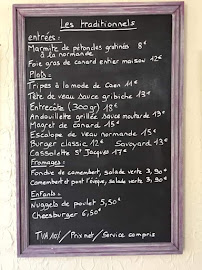 Les traditionnels
entrées:
Marmite de pétoncles gratinés 8€
à la normande
Foie gras de canard entier maison 12€
Plats:
Tripes à la mode de Caen 11€
Tête de veau sauce gribiche 13€
Entrecôte (300gr) 18€
Andouillette grillée sauce moutarde 13€
Magret de canard 15€
Escalope de veau normande 15€
Burger classic 12€ Savoyard 13€
Cassolette St Jacques 17€
Fromages:
Fondue de camembert, salade verte 3,90
Camembert et pont l'évêque, salade verte 3,90
Enfants:
Nuggets de poulet 5,50€
Cheesburger 6,50€
TVA 10% / Prix net / Service compris